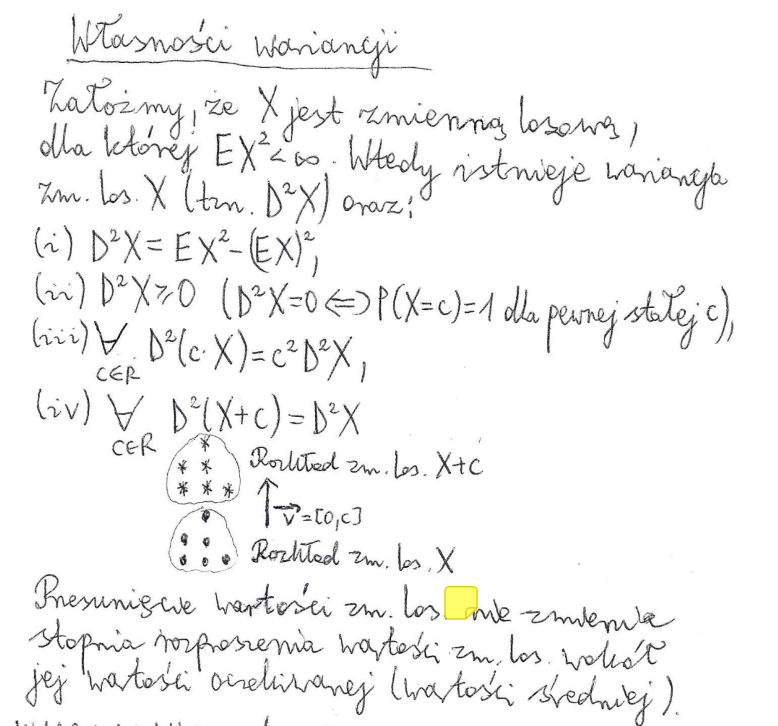 Własności wariancji
Załóżmy, że X jest zmienną losową,
dla której EX²<∞. Wtedy istnieje wariancja
zm. los. X (tzn. D²X) oraz:
(i) D²X = EX²-(EX)²,
(ii) D²X⩾0 (D²X=0⇔P(X=c)=1 dla pewnej stałej c),
(iii) ∀ D²(c·X)=c²D²X,
c∈R
(iv) ∀ D²(X+c)=D²X
c∈R
Rozkład zm. los. X+c
v⃗=[0,c]
Rozkład zm. los. X
Przesunięcie wartości zm. los nie zmienia
stopnia rozproszenia wartości zm. los. wokół
jej wartości oczekiwanej (wartości średniej).